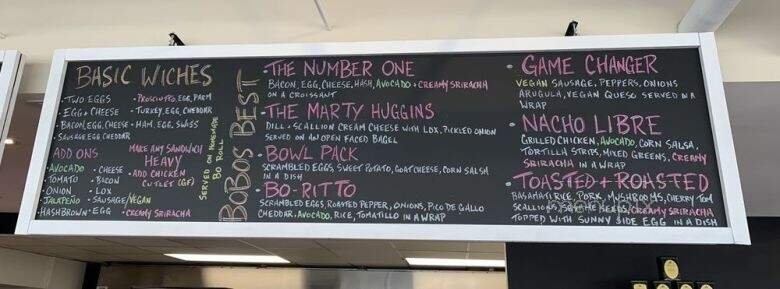 BASIC WICHES
• TWO EGGS
• EGG + CHEESE
• BACON, EGG, CHEESE
• SAUSAGE EGG CHEDDAR
• PROSCIUTTO, EGG, PARM
• TURKEY, EGG, CHEDDAR
• HAM, EGG, SWISS
ADD ONS
• AVOCADO
• TOMATO
• ONION
• JALAPEÑO
• HASHBROWN
• CHEESE
• BACON
• LOX
• SAUSAGE/VEGAN
• EGG
MAKE ANY SANDWICH
HEAVY
• ADD CHICKEN
CUTLET (GF)
• CREAMY SRIRACHA
SERVED ON HOMEMADE
BO ROLL
BOBOS BEST
• THE NUMBER ONE
BACON, EGG, CHEESE, HASH, AVOCADO + CREAMY SRIRACHA
ON A CROISSANT
• THE MARTY HUGGINS
DILL + SCALLION CREAM CHEESE WITH LOX, PICKLED ONION
SERVED ON AN OPEN FACED BAGEL
• BOWL PACK
SCRAMBLED EGGS, SWEET POTATO, GOAT CHEESE, CORN SALSA
IN A DISH
• BO-RITTO
SCRAMBLED EGGS, ROASTED PEPPER, ONIONS, PICO DE GALLO
CHEDDAR, AVOCADO, RICE, TOMATILLO IN A WRAP
• GAME CHANGER
VEGAN SAUSAGE, PEPPERS, ONIONS
ARUGULA, VEGAN QUESO SERVED IN A
WRAP
• NACHO LIBRE
GRILLED CHICKEN, AVOCADO, CORN SALSA,
TORTILLA STRIPS, MIXED GREENS, CREAMY
SRIRACHA IN A WRAP
• TOASTED + ROASTED
BASAMATI RICE, PORK, MUSHROOMS, CHERRY TOM
SCALLIONS, SESAME SEEDS, CREAMY SRIRACHA
TOPPED WITH SUNNY SIDE EGG IN A DISH